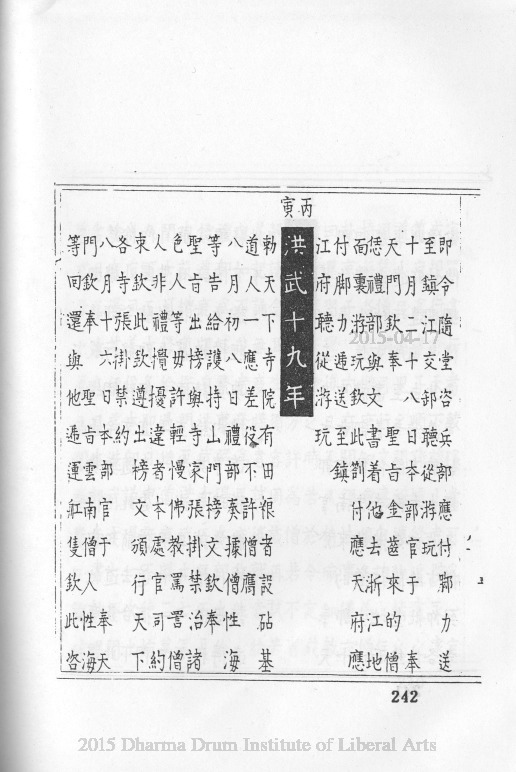 即令隨堂咨兵部應付腳力送
至鎮江交卸聽從游玩
十月二十八日本部官于奉
天門欽奉聖旨金齒來的僧
恁禮部與文書着他去浙江地
面裏游玩欽此劄付應天府應
付腳力遞送至鎮
江府聽從游玩
丙寅
洪武十九年
勑天下寺院有田粮者設砧基
道人一應差役不許僧應
八月初八日禮部奏據僧性海
等告給護持山門榜文欽奉
聖旨出榜與寺家張掛禁治諸
色人等毋許輕慢佛教罵詈僧
人非禮攪擾違者本處官司約
束欽此欽遵出榜文頒行天下
各寺張掛禁約
八月十六日本部官于奉天
門欽奉聖旨雲南僧人性海
等回還與他遞運舡隻欽此咨
242
2015-04-17
2015 Dharma Drum Institute of Liberal Arts